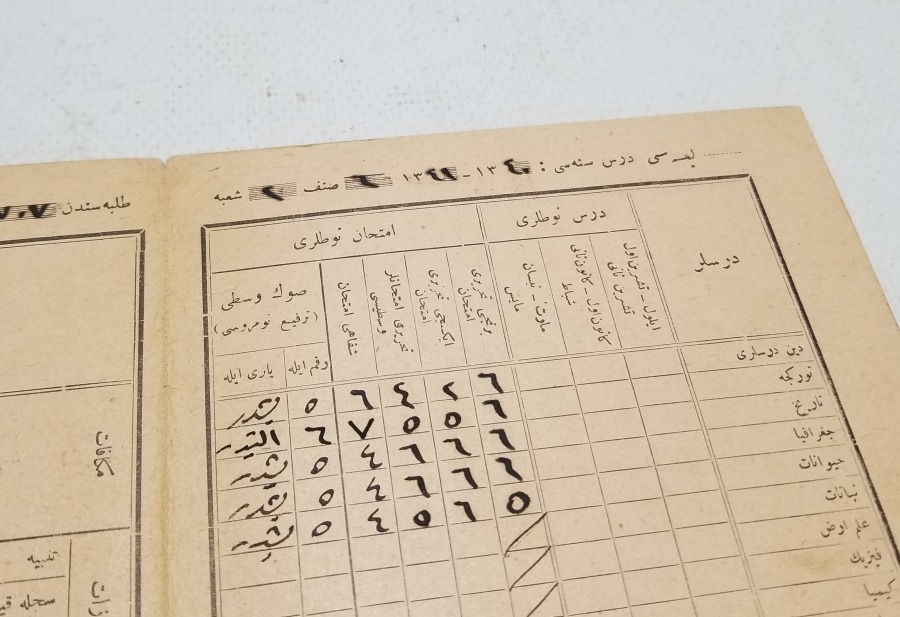 لیسه سی درس سنه سی : ١٣٤٠ - ١٣٤١ صنف ٢ شعبه
طلبه سندن ٧٠٧
درسلر
درس نوطلری
امتحان نوطلری
ایلول - تشرین اول تشرین ثانی
کانون اول - کانون ثانی شباط
مارت - نیسان مایس
برنجی تحریری امتحان
ایکنجی تحریری امتحان
تحریری امتحانلر وسطیسی
شفاهی امتحان
صوك وسطی
(ترفیع نومروسی)
رقم ایله
یازی ایله
دین درسلری
تورکجه ٦ ٢ ٤ ٦ ٥ بشدر
تاریخ ٦ ٥ ٥ ٧ ٦ التیدر
جغرافیا ٦ ٦ ٦ ٤ ٥ بشدر
حیوانات ٦ ٦ ٦ ٤ ٥ بشدر
نباتات ٥ ٦ ٥ ٤ ٥ بشدر
علم ارض
فیزیك
کیمیا
مکافات
تنبیه